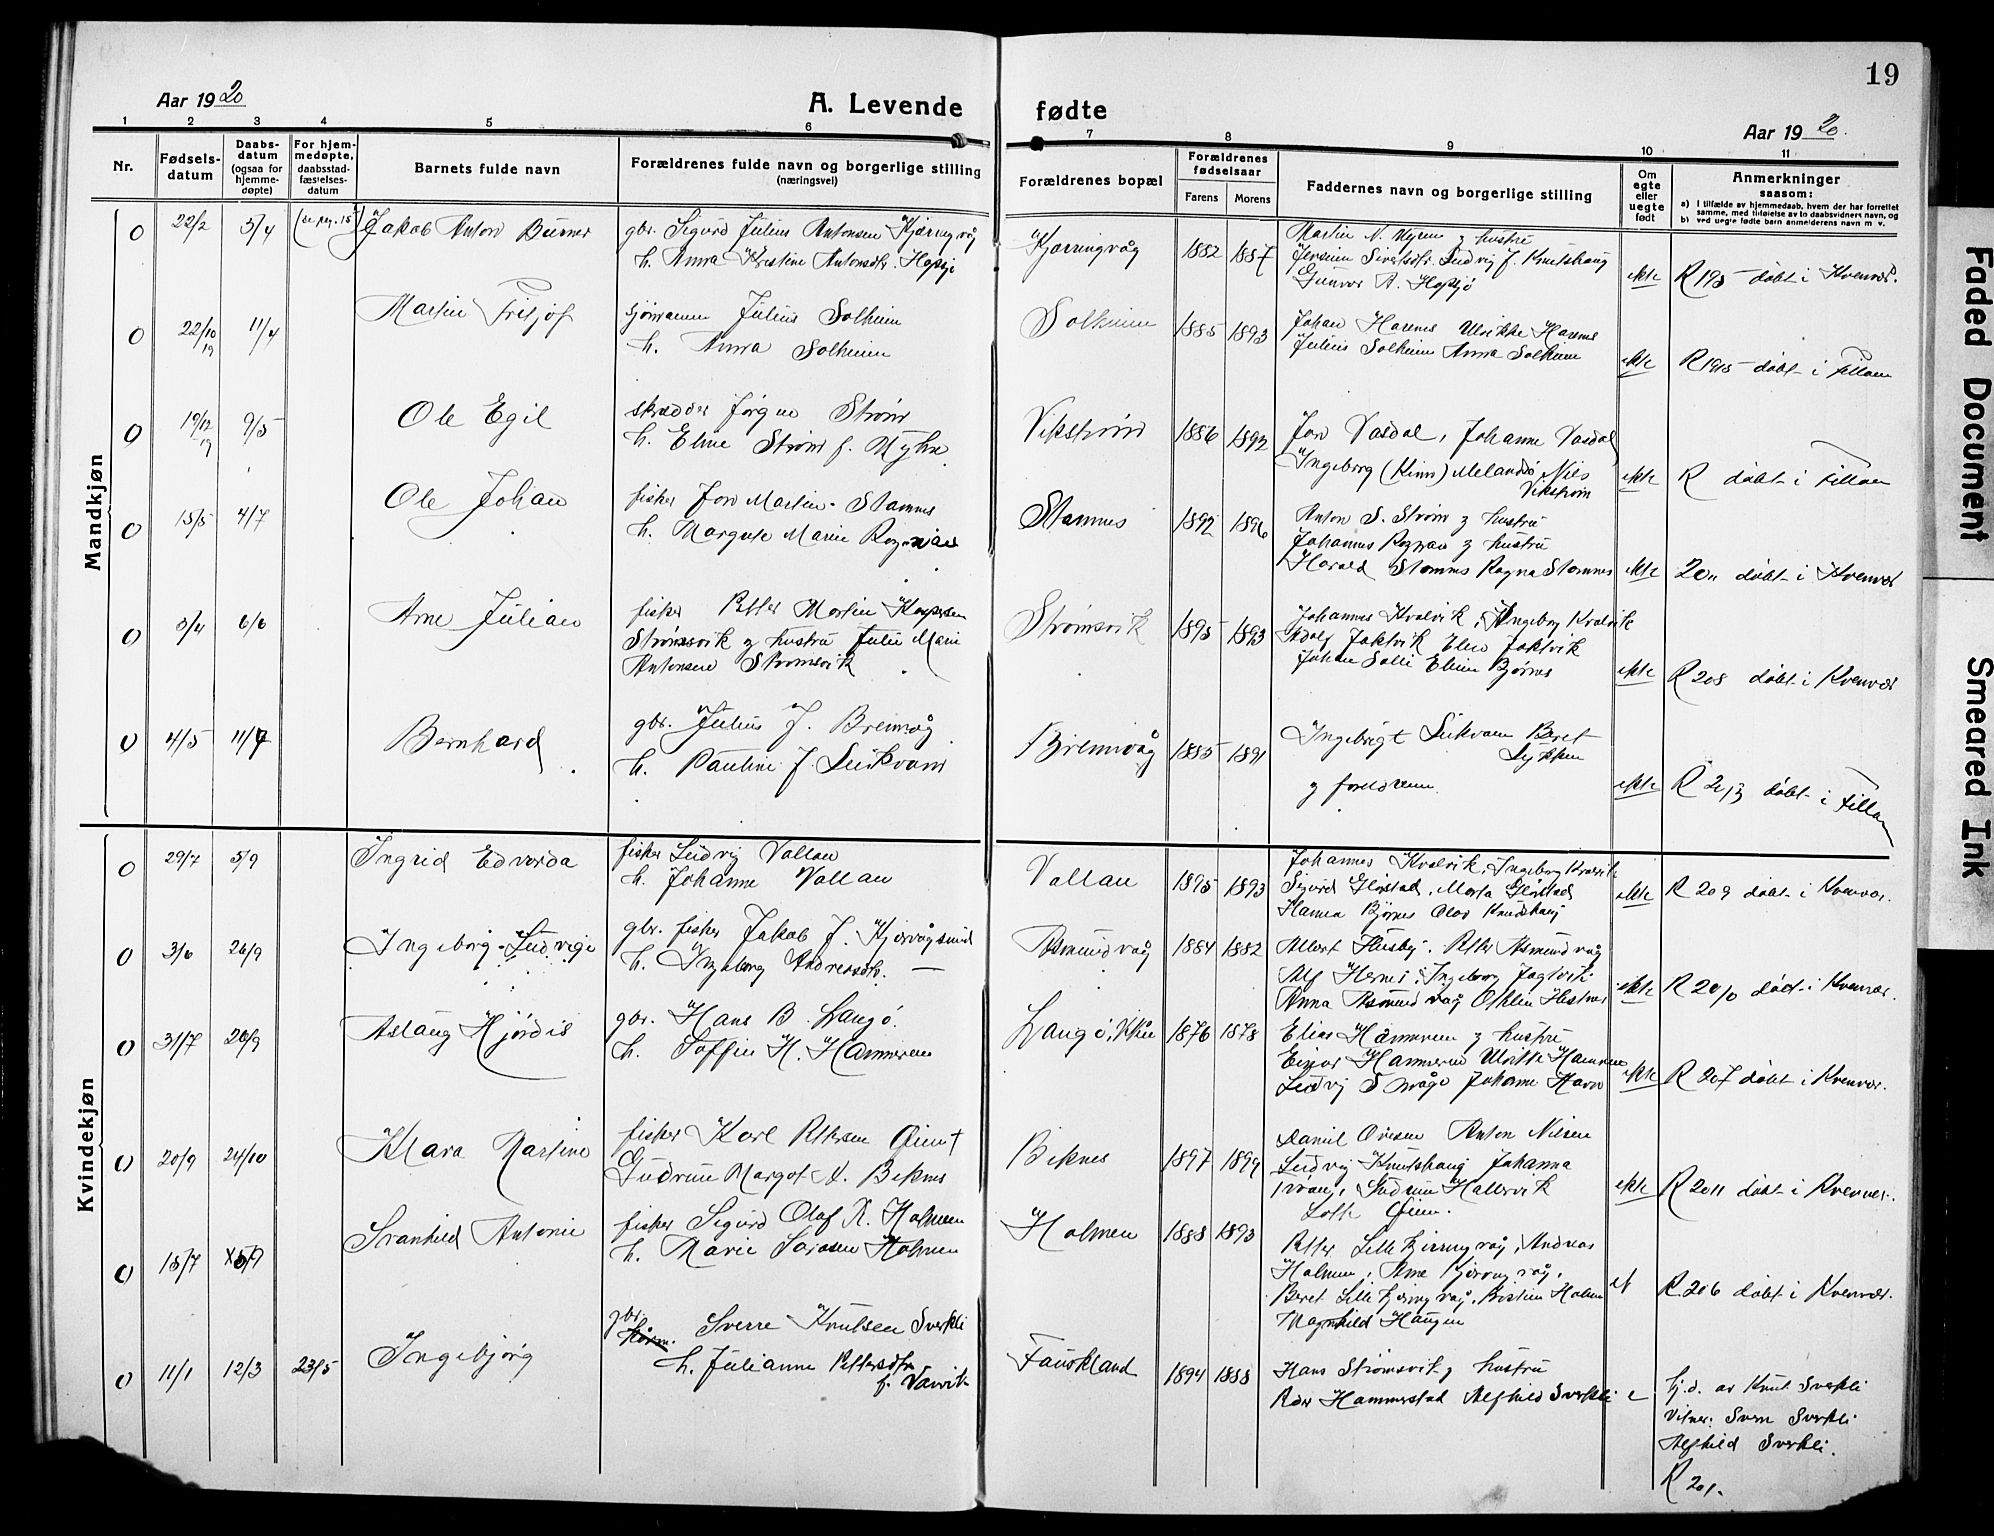 19
Aar 1920
A. Levende fødte
Aar 1920.
1 2 3 4 5 6 7 8 9 10 11
Nr.
Fødsels-datum
Daabs-datum (ogsaa for hjemme-døpte)
For hjem-medøpte, daabsstad-fæstelses-datum
Barnets fulde navn
Forældrenes fulde navn og borgerlige stilling
(næringsvei)
Forældrenes bopæl
Forældrenes fødselsaar
Farens Morens
Faddernes navn og borgerlige stilling
Om egte eller uegte født
Anmerkninger
saasom:
a) I tilfælde av hjemmedaab, hvem der har forrettet samme, med tilføielse av to daabsvidners navn, og
b) ved uegte fødte barn anmelderens navn m. v.
Mandkjøn
0 22/2 5/4 Jakob Anton
gbr. Sigurd Julius Antonsen Kjærringvåg
h. Anna Kristine Antonsdtr. Hopsjø
Kjærringvåg 1882 1887
Martin N. Myren og hustru
Ludvig J. Knutshaug
Gunvor A. Hopsjø
ekte R 195 døbt i Kvenvær.
0 22/10 19 11/4 Martin Fritjof
Julius Solheim
h. Anna Solheim
Solheim 1885 1893
Johan Ulrikke
Julius Solheim Anna Solheim
ekte R døbt i Fillan
0 19/12 19 9/5 Ole Egil
skrædder Jørgen Strøm
h. Eline Strøm f. Myhre
Vikstrøm 1886 1892
Jon Vasdal, Johanne Vasdal
Ingeborg Nils
Vikstrøm
ekte R døbt i Fillan
0 15/5 4/7 Ole Johan
fisker Jon Martin Stamnes
h. Margrete Marie
Stamnes 1892 1896
Anton S. Strøm og hustru
Johannes og hustru
Harald Stamnes Ragna Stamnes
ekte 20 døbt i Kvenvær
0 3/4 6/6 Arne Julian
fisker Petter Martin Kaspersen
Strømsvik og hustru Julie Marie
Antonsen Strømsvik
Strømsvik 1895 1893
Johannes Kvalvik, Ingeborg Kvalvik
Adolf Jaktvik Jaktvik
Johan Solli Bjørnes
ekte R 208 døbt i Kvenvær
0 4/5 11/7 Bernhard
gbr. Julius J. Bremvåg
h. Pauline J. Leikvam
Bremvåg 1885 1891
Ingebrigt Leikvam Beret
Lykken
og foreldrene.
ekte R 213 døbt i Fillan
Kvindekjøn
0 29/7 5/9 Ingrid Edvarda
fisker Ludvig Vallan
h. Johanne Vallan
Vallan 1895 1893
Johannes Kvalvik, Ingeborg Kvalvik
Sigurd Glørstad, Marta Glørstad
Bjørnes Olav Knudshaug
ekte R 209 døbt i Kvenvær.
0 3/6 26/9 Ingeborg Ludvige
gbr. fisker Jakob J. Kjørvågsund
h. Ingeborg Andreasdtr. —
Asmundvåg 1884 1882
Albert Husby. Petter Asmundvåg
Alf Ingeborg Jagtvik
Anna Asmundvåg Othlin Hestnes
ekte R 210 døbt i Kvenvær.
0 31/7 26/9 Aslaug Hjørdis
gbr. Hans B. Langø.
h. Soffie H. Hammeren
Langø, 1876 1878
Elias Hammeren og hustru
Einar Hammeren Ulrikke Hammeren
Ludvig Johanne Havn
ekte R 207 døbt i Kvenvær.
0 20/9 24/10 Klara Martine
fisker Karl Pettersen Øien +
Gudrun Margot A. Beknes
Beknes 1897 1899
Daniel Ovesen Anton Nilsen
Ludvig Knutshaug Johanna
Gudrun Hallervik
Øien.
ekte R 2011 døbt i Kvenvær.
0 15/7 5/9 Svanhild Antonie
fisker Sigurd Olaf R. Holmen
h. Marie Holmen
Holmen 1888 1893
Petter Lillekjerringvåg, Andreas
Holmen, Arne Kjerringvåg,
Beret Lillekjerringvåg, Kristine Holmen
Magnhild Haugen
R 206 døbt i Kvenvær.
0 11/1 12/3 23/5 Ingebjørg
gbr. Sverre Knutsen Sverkli
h. Julianne Pettersdtr.
f. Vavik
Fauskland 1894 1888
Hans Strømsvik og hustru
Hammerstad Alfhild Sverkli
e
hj.d. av Knut Sverkli
Vitner: Sverkli
Alfhild Sverkli.
R 201.
Faded Document
Smeared Ink